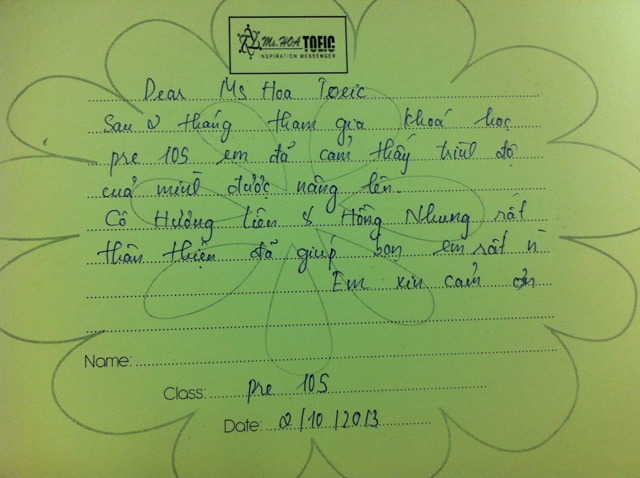 Ms. HOA TOEIC
INSPIRATION MESSENGER
Dear Ms Hoa Toeic
Sau 2 tháng tham gia khoá học
pre 105 em đã cảm thấy trình độ
của mình được nâng lên.
Cô Hương Liên & Hồng Nhung rất
thân thiện đã giúp bọn em rất n
Em xin cảm ơn
Name:
Class: pre 105
Date: 2/10/2013